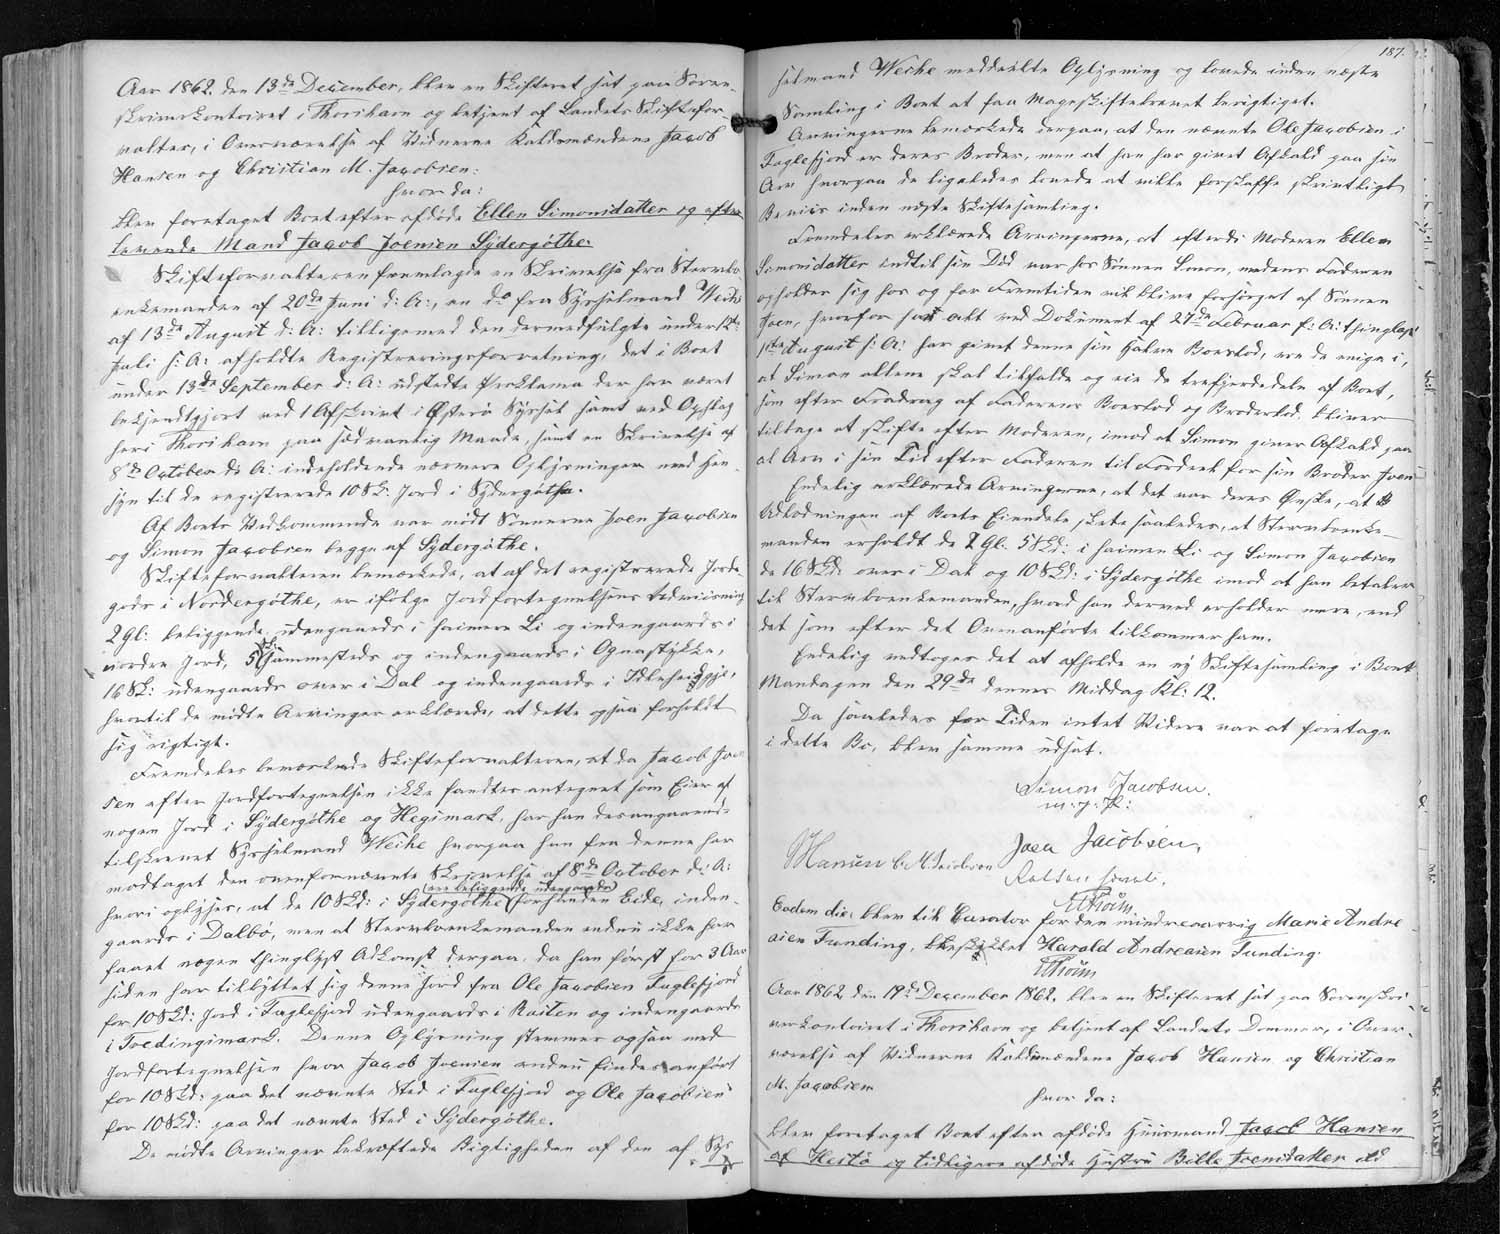 Aar 1862, den 13de December, blev en Skifteret sat paa Soren-
skriverkontoiret i Thorshavn og betjent af Landets Skiftefor-
valter, i Overværelse af Vidnerne Kaldsmændene Jacob
Hansen og Christian M. Jacobsen:
hvor da:
blev foretaget Boet efter afdøde Ellen Simonsdatter og efter-
levende Mand Jacob Joensen Sydergøthe.
Skifteforvalteren fremlagde en Skrivelse fra Stervbo-
enkemanden af 20de Juni d: A:, en do fra Sysselmand Weihe
af 13de August d: A: tilligemed den dermedfulgte under 12te
Juli s: A: afholdte Registreringsforretning, det i Boet
under 13de September d: A: udstedte Proklama der har været
bekjendtgjort ved 1 Afskrivt i Østerø Syssel samt ved Opslag
her i Thorshavn paa sædvanlig Maade, samt en Skrivelse af
8de October d: A: indeholdende nærmere Oplysninger med Hen-
syn til de registrerede 10 Sk: Jord i Sydergøthe.
Af Boets Vedkommende var mødt Sønnerne Joen Jacobsen
og Simon Jacobsen begge af Sydergøthe.
Skifteforvalteren bemærkede, at af det registrerede Jorde-
gods i Nordergøthe, er ifølge Jordfortegnelsens Udviisning
2 Gl: beliggende udengaards i haimere Li og indengaards i
nordre Jord, 5 Sk: sammesteds og indengaards i Ognastykke,
16 Sk: udengaards over i Dal og indengaards i
hvortil de mødte Arvinger erklærede, at dette ogsaa forholdt
sig rigtigt.
Fremdeles bemærkede Skifteforvalteren, at da Jacob Joen-
sen efter Jordfortegnelsen ikke fandtes antegnet som Eier af
nogen Jord i Sydergøthe og Hegimark, har han desangaaende
tilskrevet Sysselmand Weihe hvorpaa han fra denne har
modtaget den ovenfornævnte Skrivelse af 8de October d: A:
(ere beliggende udengaards)
hvori oplyses, at de 10 Sk: i Sydergøthe forhanden Eide, inden-
gaards i Dalbø, men at Stervboenkemanden endnu ikke har
faaet nogen thinglyst Adkomst derpaa, da han først for 3 Aar
siden har tilbyttet sig denne Jord fra Ole Jacobsen Fuglefjord
for 10 Sk: Jord i Fuglefjord udengaards i Raiten og indengaards
i Tvedingimark. Denne Oplysning stemmer ogsaa med
Jordfortegnelsen hvor Jacob Joensen endnu findes anført
for 10 Sk: paa det nævnte Sted i Fuglefjord og Ole Jacobsen
for 10 Sk: paa det nævnte Sted i Sydergøthe.
De mødte Arvinger bekræftede Rigtigheden af den af Sys
187.
selmand Weihe meddeelte Oplysning og lovede inden næste
Samling i Boet at faa Mageskiftebrevet berigtiget.
Arvingerne bemærkede derpaa, at den nævnte Ole Jacobsen i
Fuglefjord er deres Broder, men at han har givet Afkald paa sin
Arv hvorpaa de ligeledes lovede at ville forskaffe skrivtligt
Beviis inden næste Skiftesamling.
Fremdeles erklærede Arvingerne, at efterdi Moderen Ellen
Simonsdatter indtil sin Død var hos Sønnen Simon, medens Faderen
opholder sig hos og for Fremtiden vil blive forsørget af Sønnen
Joen, hvorfor han alt ved Dokument af 27de Februar f: A: thinglæst
1ste August s: A: har givet denne sin halve Boeslod, ere de enige i,
at Simon allene skal tilfalde og eie de trefjerdedele af Boet,
som efter Fradrag af Faderens Boeslod og Broderlod, bliver
tilbage at skifte efter Moderen, imod at Simon giver Afkald paa
al Arv i sin Tid efter Faderen til Fordeel for sin Broder Joen
Endelig erklærede Arvingerne, at det var deres Ønske, at
Udlodningen af Boets Eiendele skete saaledes, at Stervboenke-
manden erholdt de 2 Gl: 5 Sk: i haimere Li og Simon Jacobsen
de 16 Sk: over i Dal og 10 Sk: i Sydergøthe imod at han betaler
til Stervboenkemanden, hvad han derved erholder mere, end
det som efter det Ovenanførte tilkommer ham.
Endelig vedtoges det at afholde en ny Skiftesamling i Boet
Mandagen den 29de dennes Middag Kl: 12.
Da saaledes for Tiden intet Videre var at foretage
i dette Bo, blev samme udsat.
Simon Jacobsen.
m. f. P.
Joen Jacobsen,
JHansen C. M. Jacobsen
HThörn
Eodem die, blev til Curator for den mindreaarrig Marie Andre
asen Funding, beskikket Harald Andreasen Funding.
HThörn
Aar 1862 den 19de December 1862, blev en Skifteret sat paa Sorenskri
verkontoiret i Thorshavn og betjent af Landets Dommer, i Over-
værelse af Vidnerne Kaldsmændene Jacob Hansen og Christian
M. Jacobsen
hvor da:
blev foretaget Boet efter afdøde Huusmand Jacob Hansen
af Hestø og tidligere afdøde Hustru Bille Joensdatter